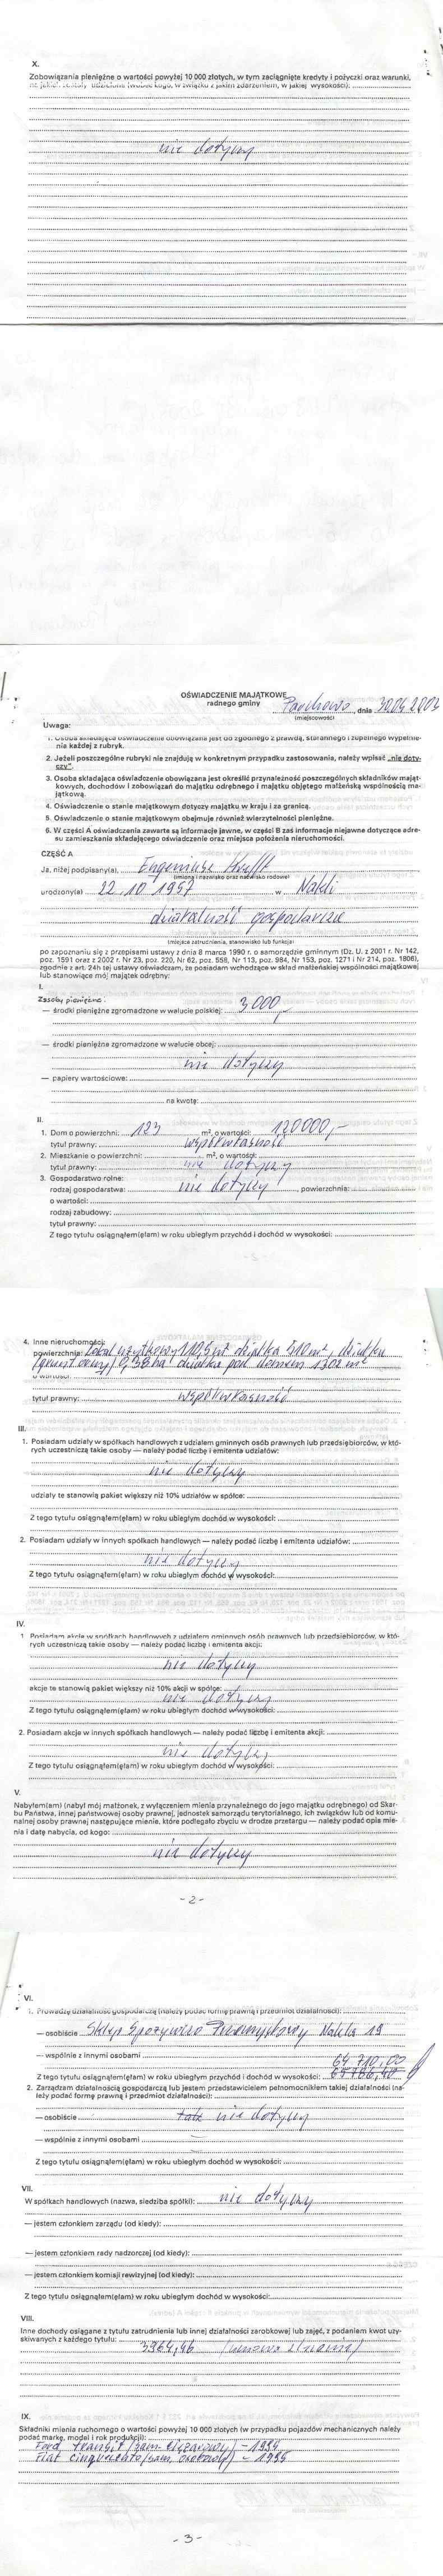 X.
Zobowiązania pieniężne o wartości powyżej 10 000 złotych, w tym zaciągnięte kredyty i pożyczki oraz warunki,
na jakich zostały udzielone (wobec kogo, w związku z jakim zdarzeniem, w jakiej wysokości):
nie dotyczy
OŚWIADCZENIE MAJĄTKOWE
radnego gminy
Parchowo, dnia 30.04.2003
(miejscowość)
Uwaga:
1. Osoba składająca oświadczenie obowiązana jest do zgodnego z prawdą, starannego i zupełnego wypełnie-
nia każdej z rubryk.
2. Jeżeli poszczególne rubryki nie znajdują w konkretnym przypadku zastosowania, należy wpisać „nie doty-
czy".
3. Osoba składająca oświadczenie obowiązana jest określić przynależność poszczególnych składników mająt-
kowych, dochodów i zobowiązań do majątku odrębnego i majątku objętego małżeńską wspólnością ma-
jątkową.
4. Oświadczenie o stanie majątkowym dotyczy majątku w kraju i za granicą.
5. Oświadczenie o stanie majątkowym obejmuje również wierzytelności pieniężne.
6. W części A oświadczenia zawarte są informacje jawne, w części B zaś informacje niejawne dotyczące adre-
su zamieszkania składającego oświadczenie oraz miejsca położenia nieruchomości.
CZĘŚĆ A
Ja, niżej podpisany(a), Eugeniusz
(imiona i nazwisko oraz nazwisko rodowe)
urodzony(a) 22.10.1957 w Nakli
działalność gospodarcza
(miejsce zatrudnienia, stanowisko lub funkcja)
po zapoznaniu się z przepisami ustawy z dnia 8 marca 1990 r. o samorządzie gminnym (Dz. U. z 2001 r. Nr 142,
poz. 1591 oraz z 2002 r. Nr 23, poz. 220, Nr 62, poz. 558, Nr 113, poz. 984, Nr 153, poz. 1271 i Nr 214, poz. 1806),
zgodnie z art. 24h tej ustawy oświadczam, że posiadam wchodzące w skład małżeńskiej wspólności majątkowej
lub stanowiące mój majątek odrębny:
I.
Zasoby pieniężne:
— środki pieniężne zgromadzone w walucie polskiej: 3.000,-
— środki pieniężne zgromadzone w walucie obcej:
nie dotyczy
— papiery wartościowe:
na kwotę:
II.
1. Dom o powierzchni: 123 m², o wartości: 120000,-
tytuł prawny: współwłasność
2. Mieszkanie o powierzchni: m², o wartości:
tytuł prawny: nie dotyczy
3. Gospodarstwo rolne:
rodzaj gospodarstwa: nie dotyczy, powierzchnia:
o wartości:
rodzaj zabudowy:
tytuł prawny:
Z tego tytułu osiągnąłem(ęłam) w roku ubiegłym przychód i dochód w wysokości:
4. Inne nieruchomości:
powierzchnia: Lokal użytkowy 110,5 m² działka 510 m², działka
(grunt orny) 0,38 ha działka pod domem 1302 m²
o wartości:
tytuł prawny: współwłasność
III.
1. Posiadam udziały w spółkach handlowych z udziałem gminnych osób prawnych lub przedsiębiorców, w któ-
rych uczestniczą takie osoby — należy podać liczbę i emitenta udziałów:
nie dotyczy
udziały te stanowią pakiet większy niż 10% udziałów w spółce:
Z tego tytułu osiągnąłem(ęłam) w roku ubiegłym dochód w wysokości:
2. Posiadam udziały w innych spółkach handlowych — należy podać liczbę i emitenta udziałów:
nie dotyczy
Z tego tytułu osiągnąłem(ęłam) w roku ubiegłym dochód w wysokości:
IV.
1. Posiadam akcje w spółkach handlowych z udziałem gminnych osób prawnych lub przedsiębiorców, w któ-
rych uczestniczą takie osoby — należy podać liczbę i emitenta akcji:
nie dotyczy
akcje te stanowią pakiet większy niż 10% akcji w spółce:
nie dotyczy
Z tego tytułu osiągnąłem(ęłam) w roku ubiegłym dochód w wysokości:
2. Posiadam akcje w innych spółkach handlowych — należy podać liczbę i emitenta akcji:
nie dotyczy
Z tego tytułu osiągnąłem(ęłam) w roku ubiegłym dochód w wysokości:
V.
Nabyłem(am) (nabył mój małżonek, z wyłączeniem mienia przynależnego do jego majątku odrębnego) od Skar-
bu Państwa, innej państwowej osoby prawnej, jednostek samorządu terytorialnego, ich związków lub od komu-
nalnej osoby prawnej następujące mienie, które podlegało zbyciu w drodze przetargu — należy podać opis mie-
nia i datę nabycia, od kogo:
nie dotyczy
- 2 -
VI.
1. Prowadzę działalność gospodarczą (należy podać formę prawną i przedmiot działalności):
— osobiście Sklep Spożywczo Przemysłowy Nakla 19
— wspólnie z innymi osobami
64 710,00
Z tego tytułu osiągnąłem(ęłam) w roku ubiegłym przychód i dochód w wysokości:
2. Zarządzam działalnością gospodarczą lub jestem przedstawicielem pełnomocnikiem takiej działalności (na-
leży podać formę prawną i przedmiot działalności):
— osobiście nie dotyczy
— wspólnie z innymi osobami
Z tego tytułu osiągnąłem(ęłam) w roku ubiegłym dochód w wysokości:
VII.
W spółkach handlowych (nazwa, siedziba spółki): nie dotyczy
— jestem członkiem zarządu (od kiedy):
— jestem członkiem rady nadzorczej (od kiedy):
— jestem członkiem komisji rewizyjnej (od kiedy):
Z tego tytułu osiągnąłem(ęłam) w roku ubiegłym dochód w wysokości:
VIII.
Inne dochody osiągane z tytułu zatrudnienia lub innej działalności zarobkowej lub zajęć, z podaniem kwot uzy-
skiwanych z każdego tytułu:
3964,46 (umowa zlecenie)
IX.
Składniki mienia ruchomego o wartości powyżej 10 000 złotych (w przypadku pojazdów mechanicznych należy
podać markę, model i rok produkcji):
Ford transit (sam. ciężarowy) - 1994
Fiat cinquecento (sam. osobowy) - 1995
- 3 -